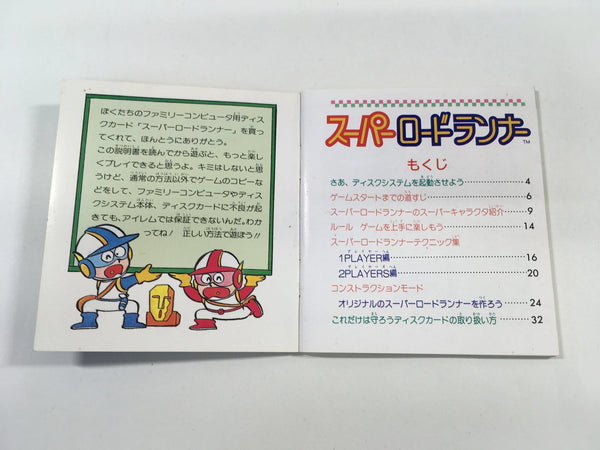 ぼくたちのファミリーコンピュータ用ディス
クカード「スーパーロードランナー」を買っ
てくれて、ほんとうにありがとう。
この説明書を読んでから遊ぶと、もっと楽し
くプレイできると思うよ。キミはしないと思
うけど、通常の方法以外でゲームのコピーな
どをして、ファミリーコンピュータやディス
クシステム本体、ディスクカードに不良が起
きても、アイレムでは保証できないんだ。わか
ってね! 正しい方法で遊ぼう!!
スーパーロードランナー™
もくじ
さあ、ディスクシステムを起動させよう………4
ゲームスタートまでの道すじ………6
スーパーロードランナーのスーパーキャラクタ紹介………9
ルール ゲームを上手に楽しもう………14
スーパーロードランナーテクニック集
1PLAYER編………16
2PLAYERS編………20
コンストラクションモード
オリジナルのスーパーロードランナーを作ろう………24
これだけは守ろうディスクカードの取り扱い方………32